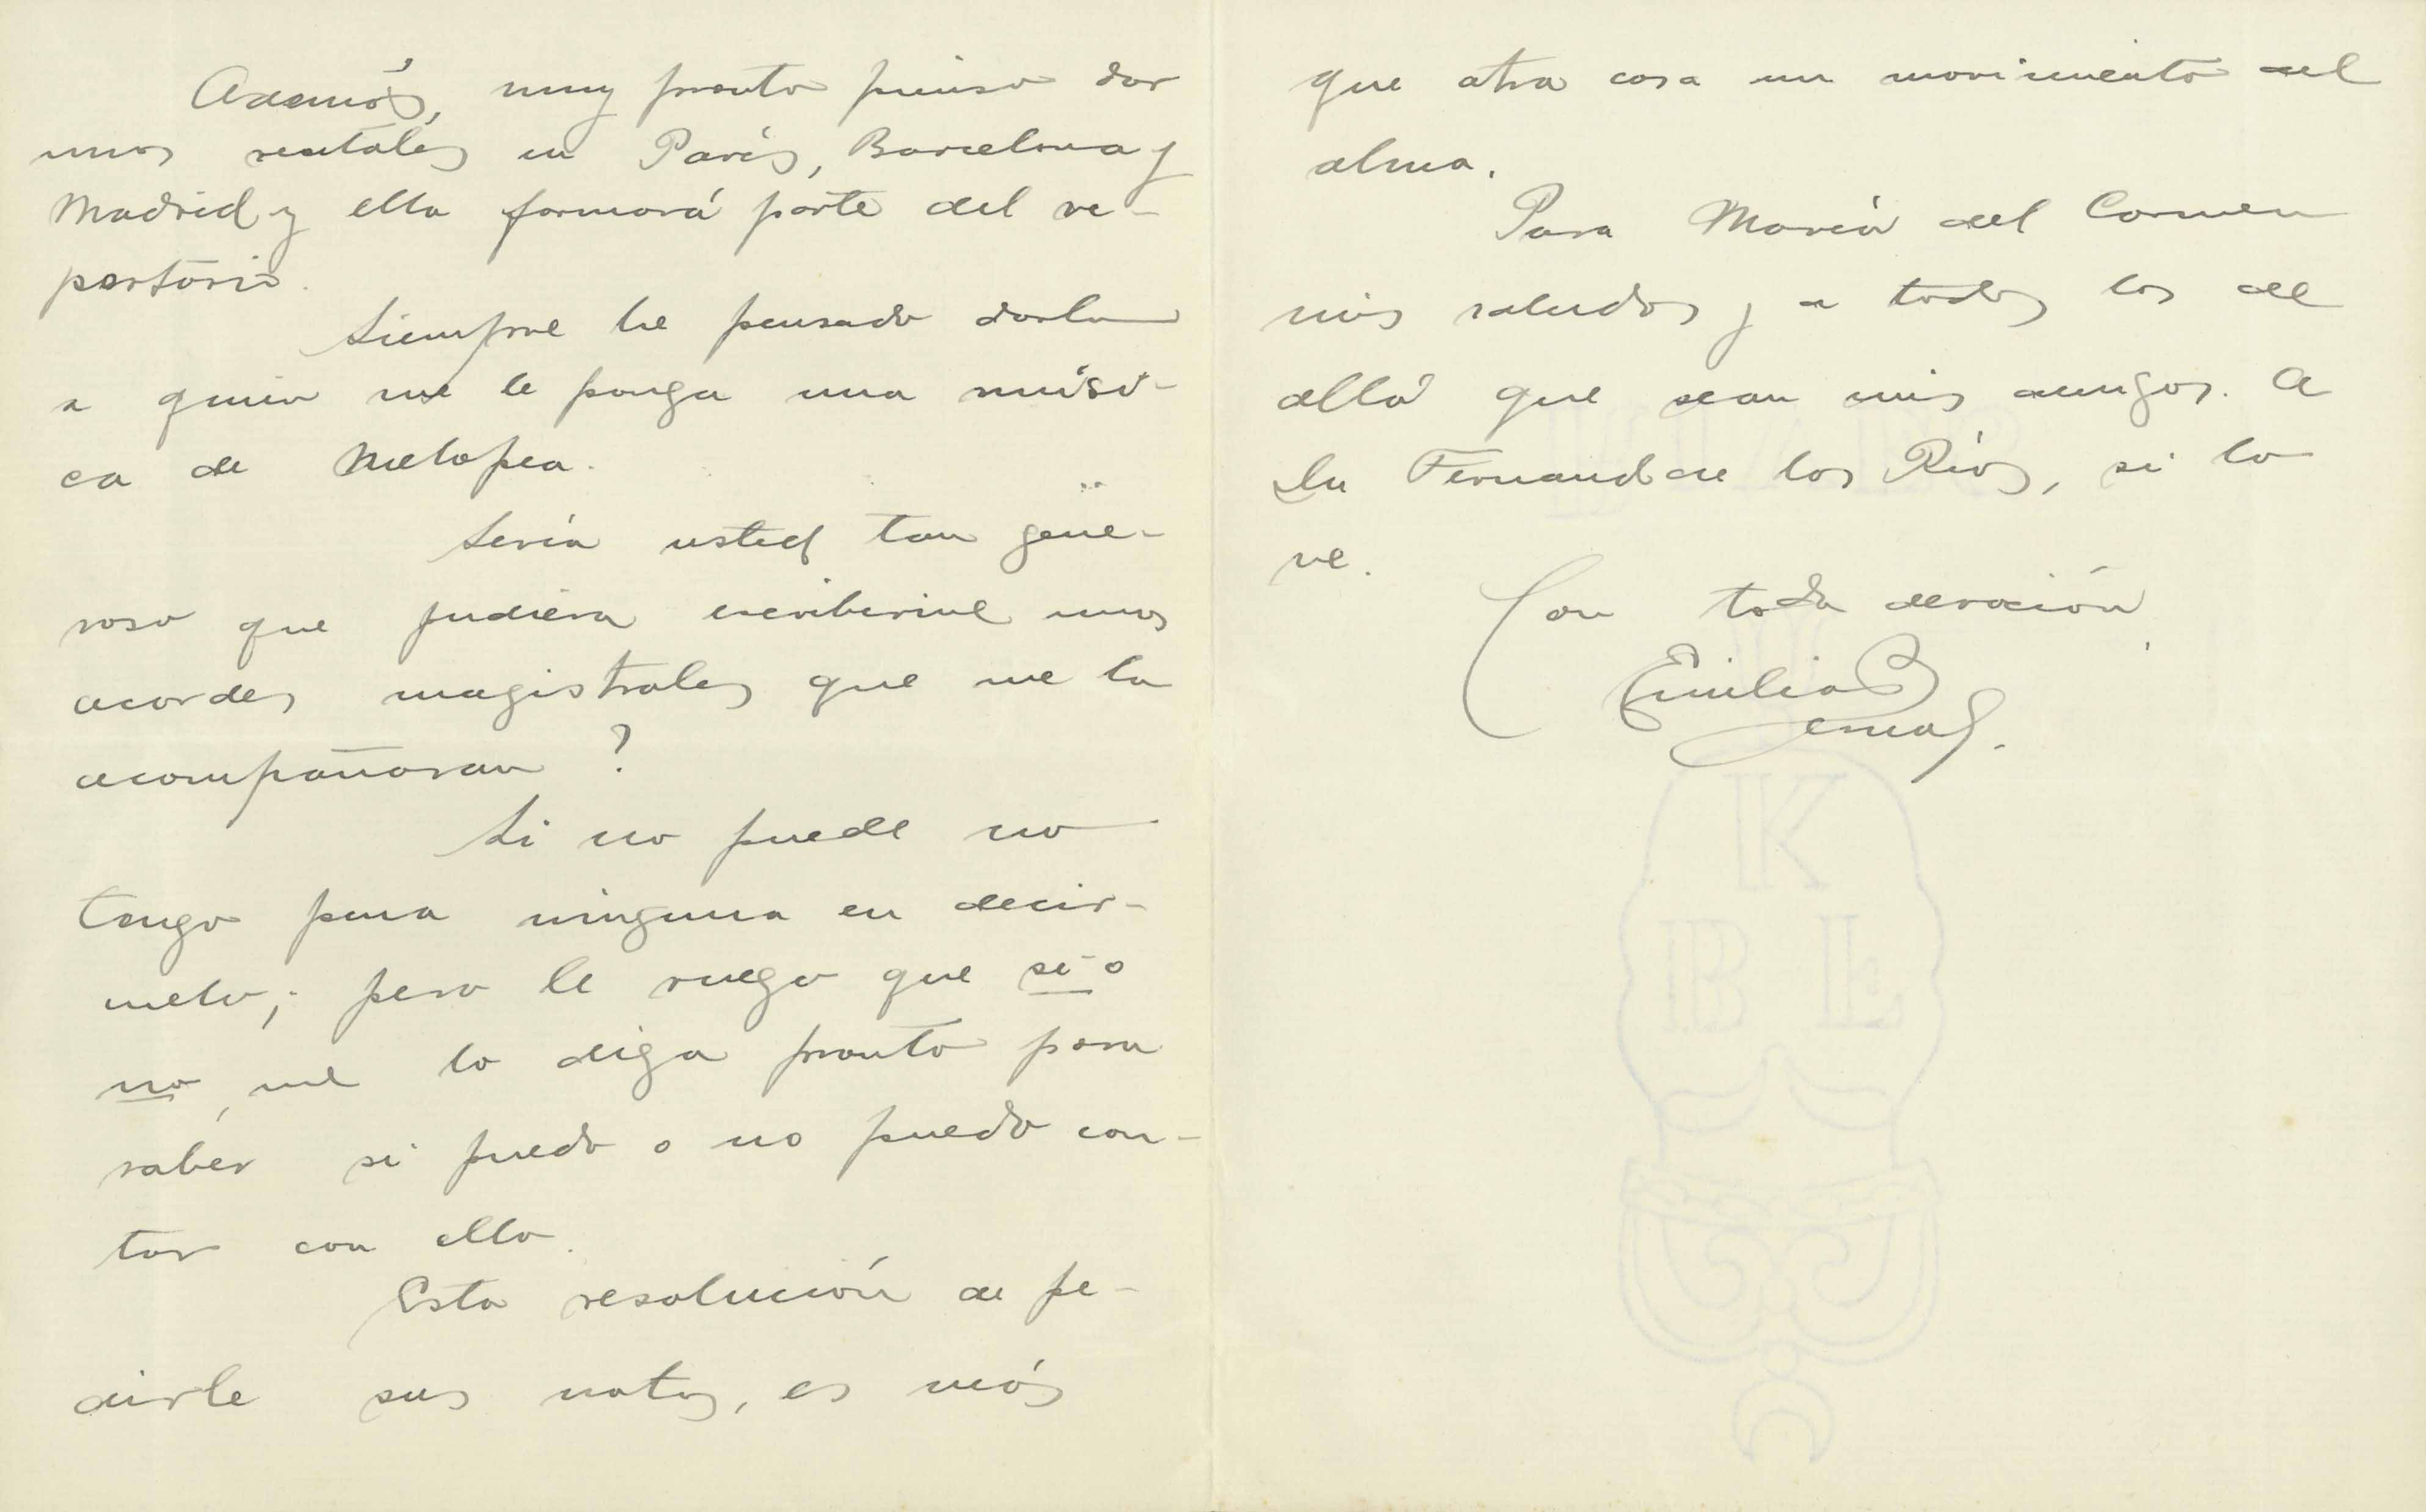 Además, muy pronto pienso dar
unos recitales en París, Barcelona y
Madrid y ella formará parte del re-
pertorio.
Siempre he pensado darla
a quien me le ponga una músi-
ca de Melopea.
Sería usted tan gene-
roso que pudiera escribirme unos
acordes magistrales que me la
acompañaran?
Si no puede no
tenga pena ninguna en decir-
melo; pero le ruego que sí o
no, me lo diga pronto para
saber si puedo o no puedo con-
tar con ello.
Esta resolución de pe-
dirle sus notas, es más
que otra cosa un movimiento del
alma.
Para María del Carmen
mis saludos y a todos los de
allá que sean mis amigos. A
Dn Fernando de los Ríos, si lo
ve.
Con toda devoción
Emilia Bernal.
K
B L